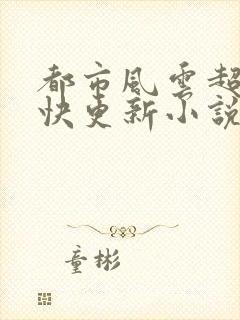 都市風雲超
快更新小說
童彬